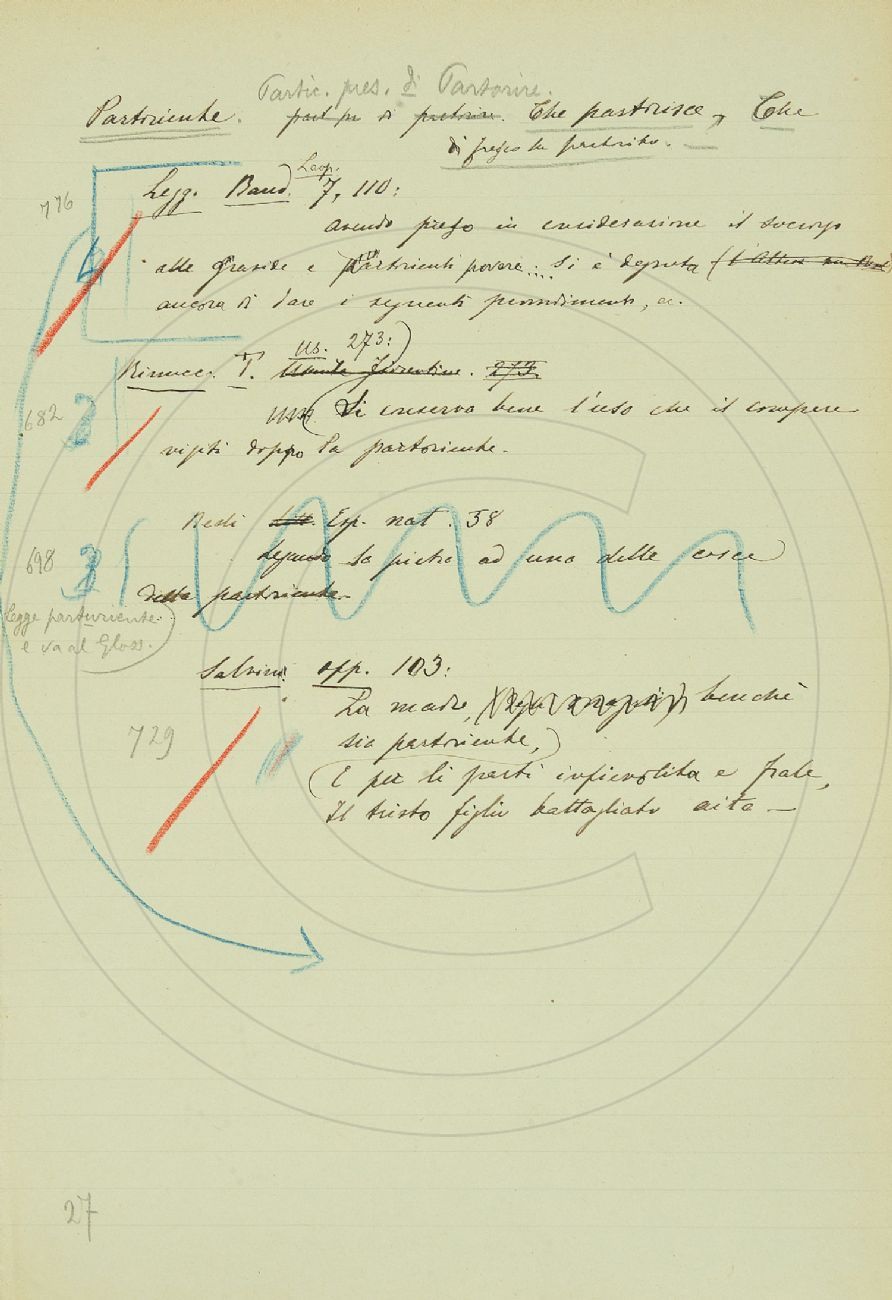 Partic. pres. di Partorire.
Partoriente. part. pr. di partorire. Che partorisce, Che
di fresco ha partorito.
Leop.
776 Legg. Band. 7, 110:
avendo preso in considerazione il soccorso
4 alle gravide e partorienti povere .... si è deputa
ancora di dare i seguenti provvedimenti, ec.
Us. 273:
Rinucc. T. Usanze fiorentine. 273.
682 2 Si conserva bene l'uso che il compere
visiti doppo la partoriente.
Redi Esp. nat. 58
698 3 legando la pietra ad una delle cosce
della partoriente.
Legge parturiente
e va al Gloss.
Salvin. opp. 103:
La madre, benchè
729 sia partoriente,
E per li parti infievolita e frale,
Il tristo figlio battagliato aita —
27